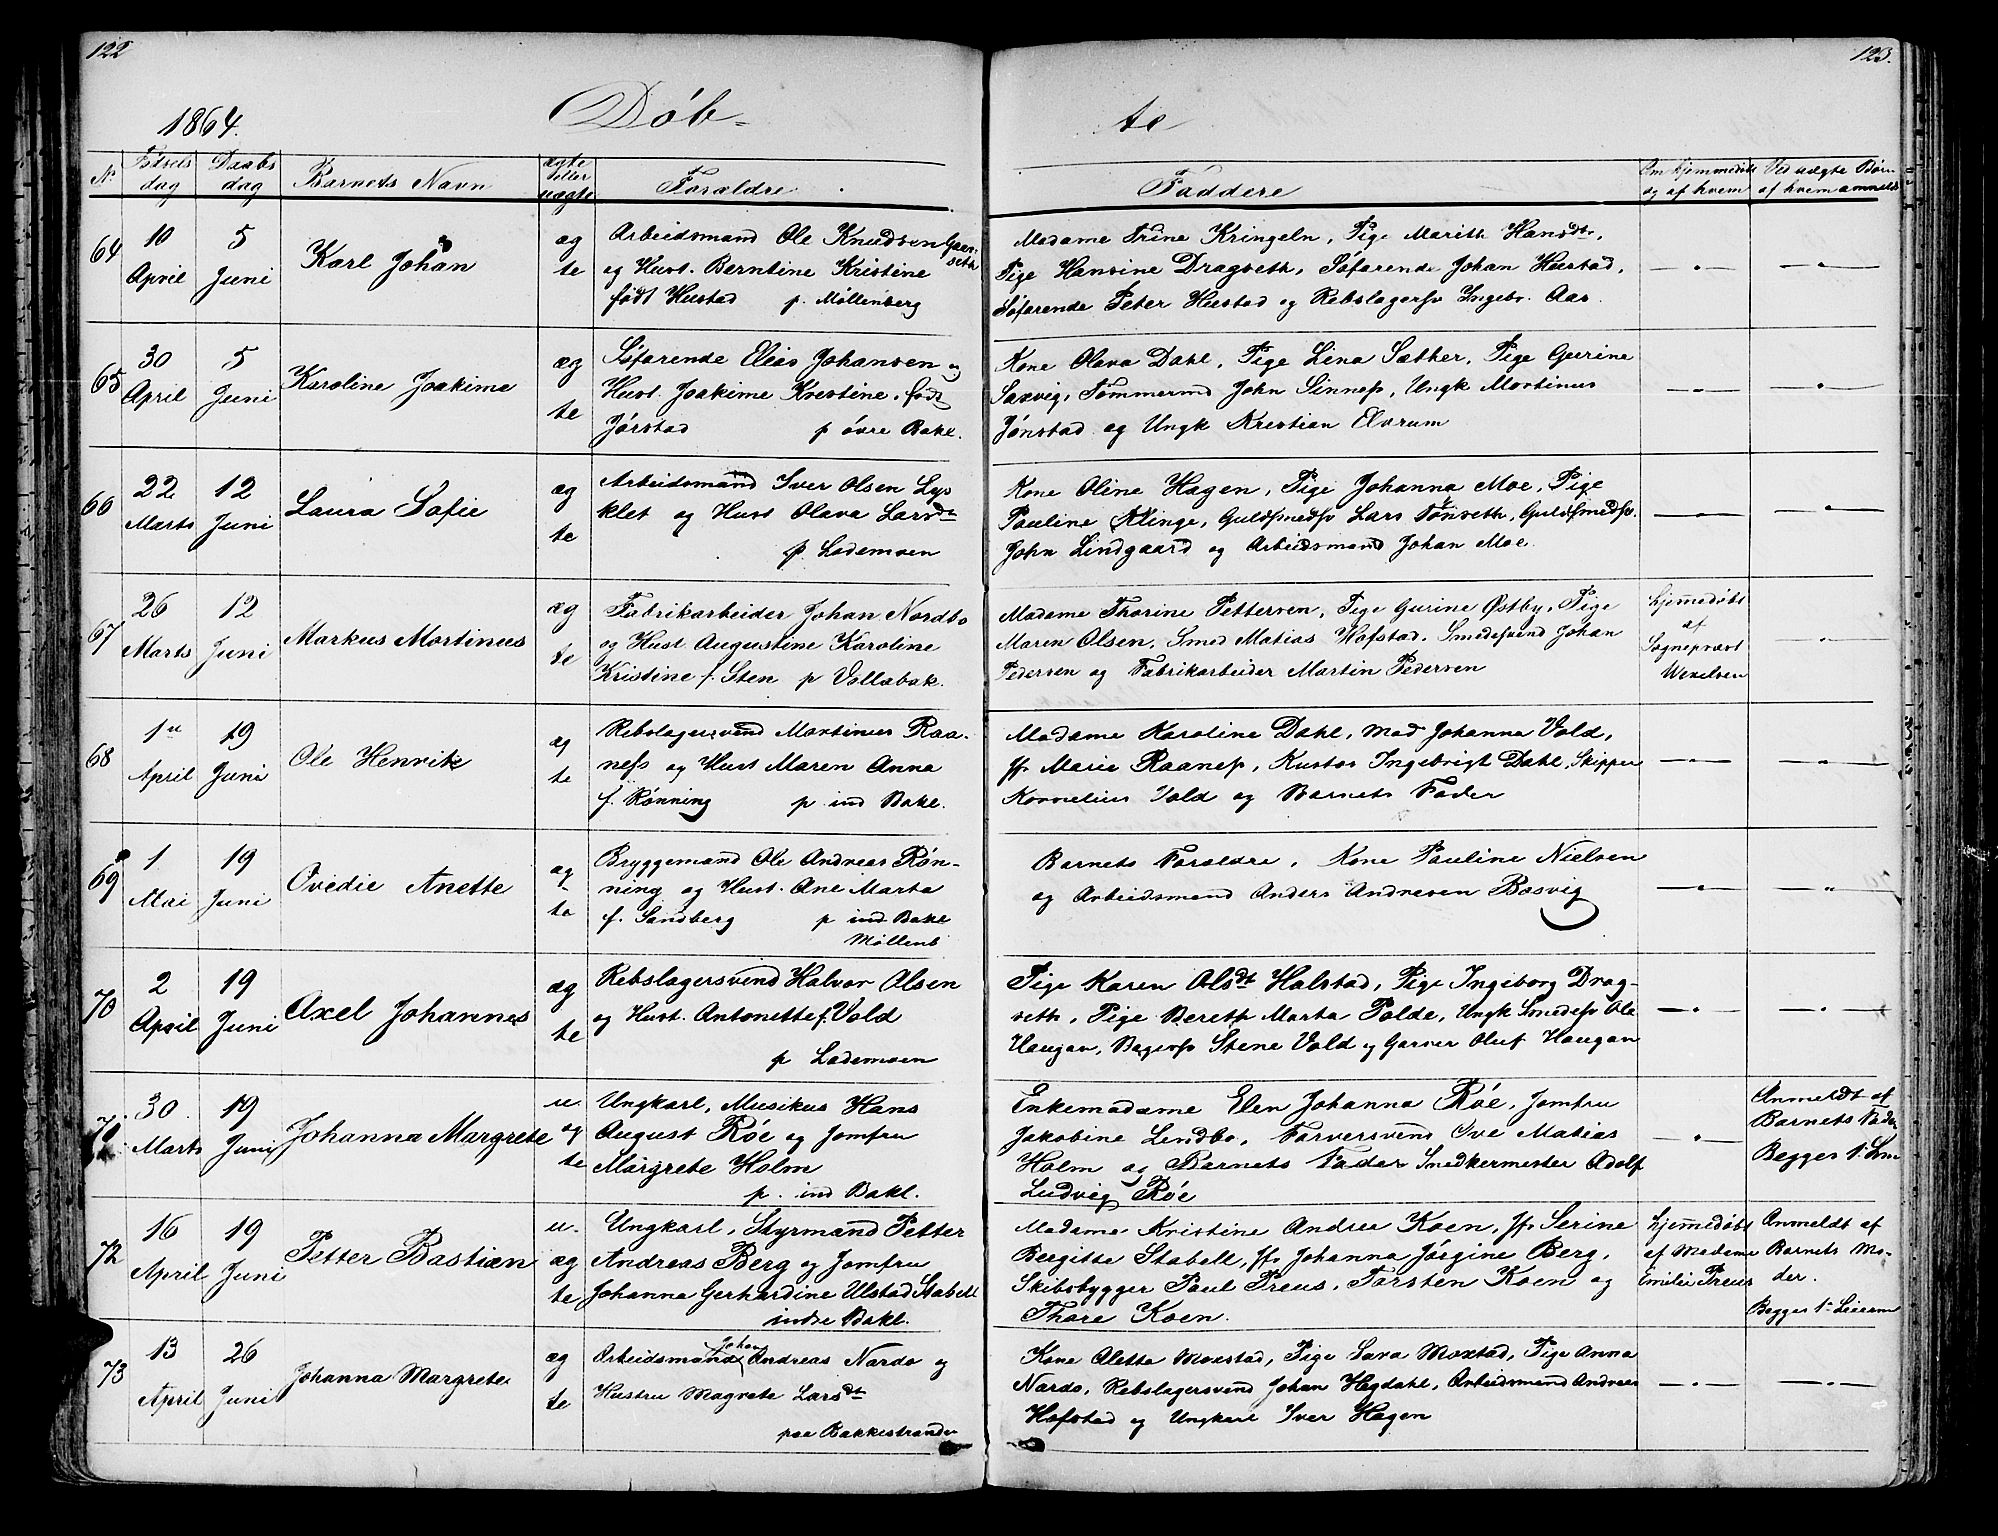 122
123.
1864.
Døb-
te
N.
Fødsels dag
Daabs dag
Barnets Navn
ægte eller uægte
Forældre
Faddere
Om hjemmedøbt og af hvem
Ved uægte Børn af hvem anmeldt
64
10 April
5 Juni
Karl Johan
æg te
Arbeidsmand Ole Knudsen
og Hust. Berntine Kristine
født Hustad p. Møllenberg
Madame Trine Kringeln, Pige Marith Hansdtr,
Pige Hansine Dragseth, Søfarende Johan Hustad,
Søfarende Peter Hustad og Rebslagersv Ingebr. Aas.
65
30 April
5 Juni
Karoline Joakime
æg te
Søfarende Elias Johansen og
Hust. Joakime Kristine, født
Jørstad p øvre Bakl.
Kone Olava Dahl, Pige Lina Sæther, Pige Gurine
Saxvig, Tømmermd John Sinnes, Ungk Martinus
Jønstad og Ungk Kristian Elvrum
66
22 Marts
12 Juni
Laura Sofie
æg te
Arbeidsmand Iver Olsen Lys
klet og Hust Olava Larsdtr
p. Lademoen
Kone Oline Hagen, Pige Johanna Moe, Pige
Pauline Klinge, Guldsmedsv Lars Tønseth, Guldsmedsv.
John Lindgaard og Arbeidsmand Johan Moe.
67
26 Marts
12 Juni
Markus Martinus
æg te
Fabrikarbeider Johan Nordbo
og Hust Augustine Karoline
Kristine f. Sten p Vollabak.
Madame Thorine Pettersen, Pige Gurine Østby, Pige
Maren Olsen, Smed Matias Hofstad, Smedesvend Johan
Pedersen og Fabrikarbeider Martin Pedersen
hjemmedøbt
af
Sogneprest
Wexelsen
68
1ste April
19 Juni
Ole Henrik
æg te
Rebslagersvend Martinus Raa-
ness og Hust Maren Anna
f. Rønning p ind Bakl.
Madame Karoline Dahl, Mad Johanna Vold,
Jfr Marie Raaness, Kustos Ingebrigt Dahl, Skipper
Kornelius Vold og Barnets Fader
69
1 Mai
19 Juni
Ovedie Anette
æg te
Bryggemand Ole Andreas Røn-
ning og Hust. Ane Marta
f. Sandberg p ind Bakl
Møllenb
Barnets Forældre, Kone Pauline Nielsen
og Arbeidsmand Anders Andresen Bosvig
70
2 April
19 Juni
Axel Johannes
æg te
Rebslagersvend Halvor Olsen
og Hust. Antonette f. Vold
p Lademoen
Pige Karen Olsdt Halstad, Pige Ingeborg Drag-
seth, Pige Bereth Marta Polde, Ungk Smedesv Ole
Haugan, Bagersv Stene Vold og Garver Oluf Haugan
71
30 Marts
19 Juni
Johanna Margrete
u. æg te
Ungkarl, Musikus Hans
August Røe og Jomfru
Margrete Holm
p. ind Bakl.
Enkemadame Elen Johanna Røe, Jomfru
Jakobine Lindbo, Farversvend Ove Matias
Holm og Barnets Fader Snedkermester Adolf
Ludvig Røe
Anmeldt af
Barnets Fader
Begges 1ste Leierm
72
16 April
19 Juni
Petter Bastian
u. æg te
Ungkarl, Styrmand Petter
Andreas Berg og Jomfru
Johanna Gerhardine Ulstad Stabell
indre Bakl.
Madame Kristine Andrea Koen, Jfr Serine
Bergitte Stabell, Jfr Johanna Jørgine Berg,
Skibsbygger Paul Preus, Torsten Koen og
Thore Koen.
hjemmedøbt
af Madame
Emilie Preus
Anmeldt af
Barnets Mo-
der.
Begges 1ste Leierm
73
13 April
26 Juni
Johanna Margrete
æg te
Arbeidsmand Johan Andreas Nardo og
Hustru Magrete Larsdt
paa Bakkestranden
Kone Olette Moxstad, Pige Sara Moxtad, Pige Anna
Nardo, Rebslagersvend Johan Hegdahl, Arbeidsmand Andreas
Hofstad og Ungkarl Iver Hagen